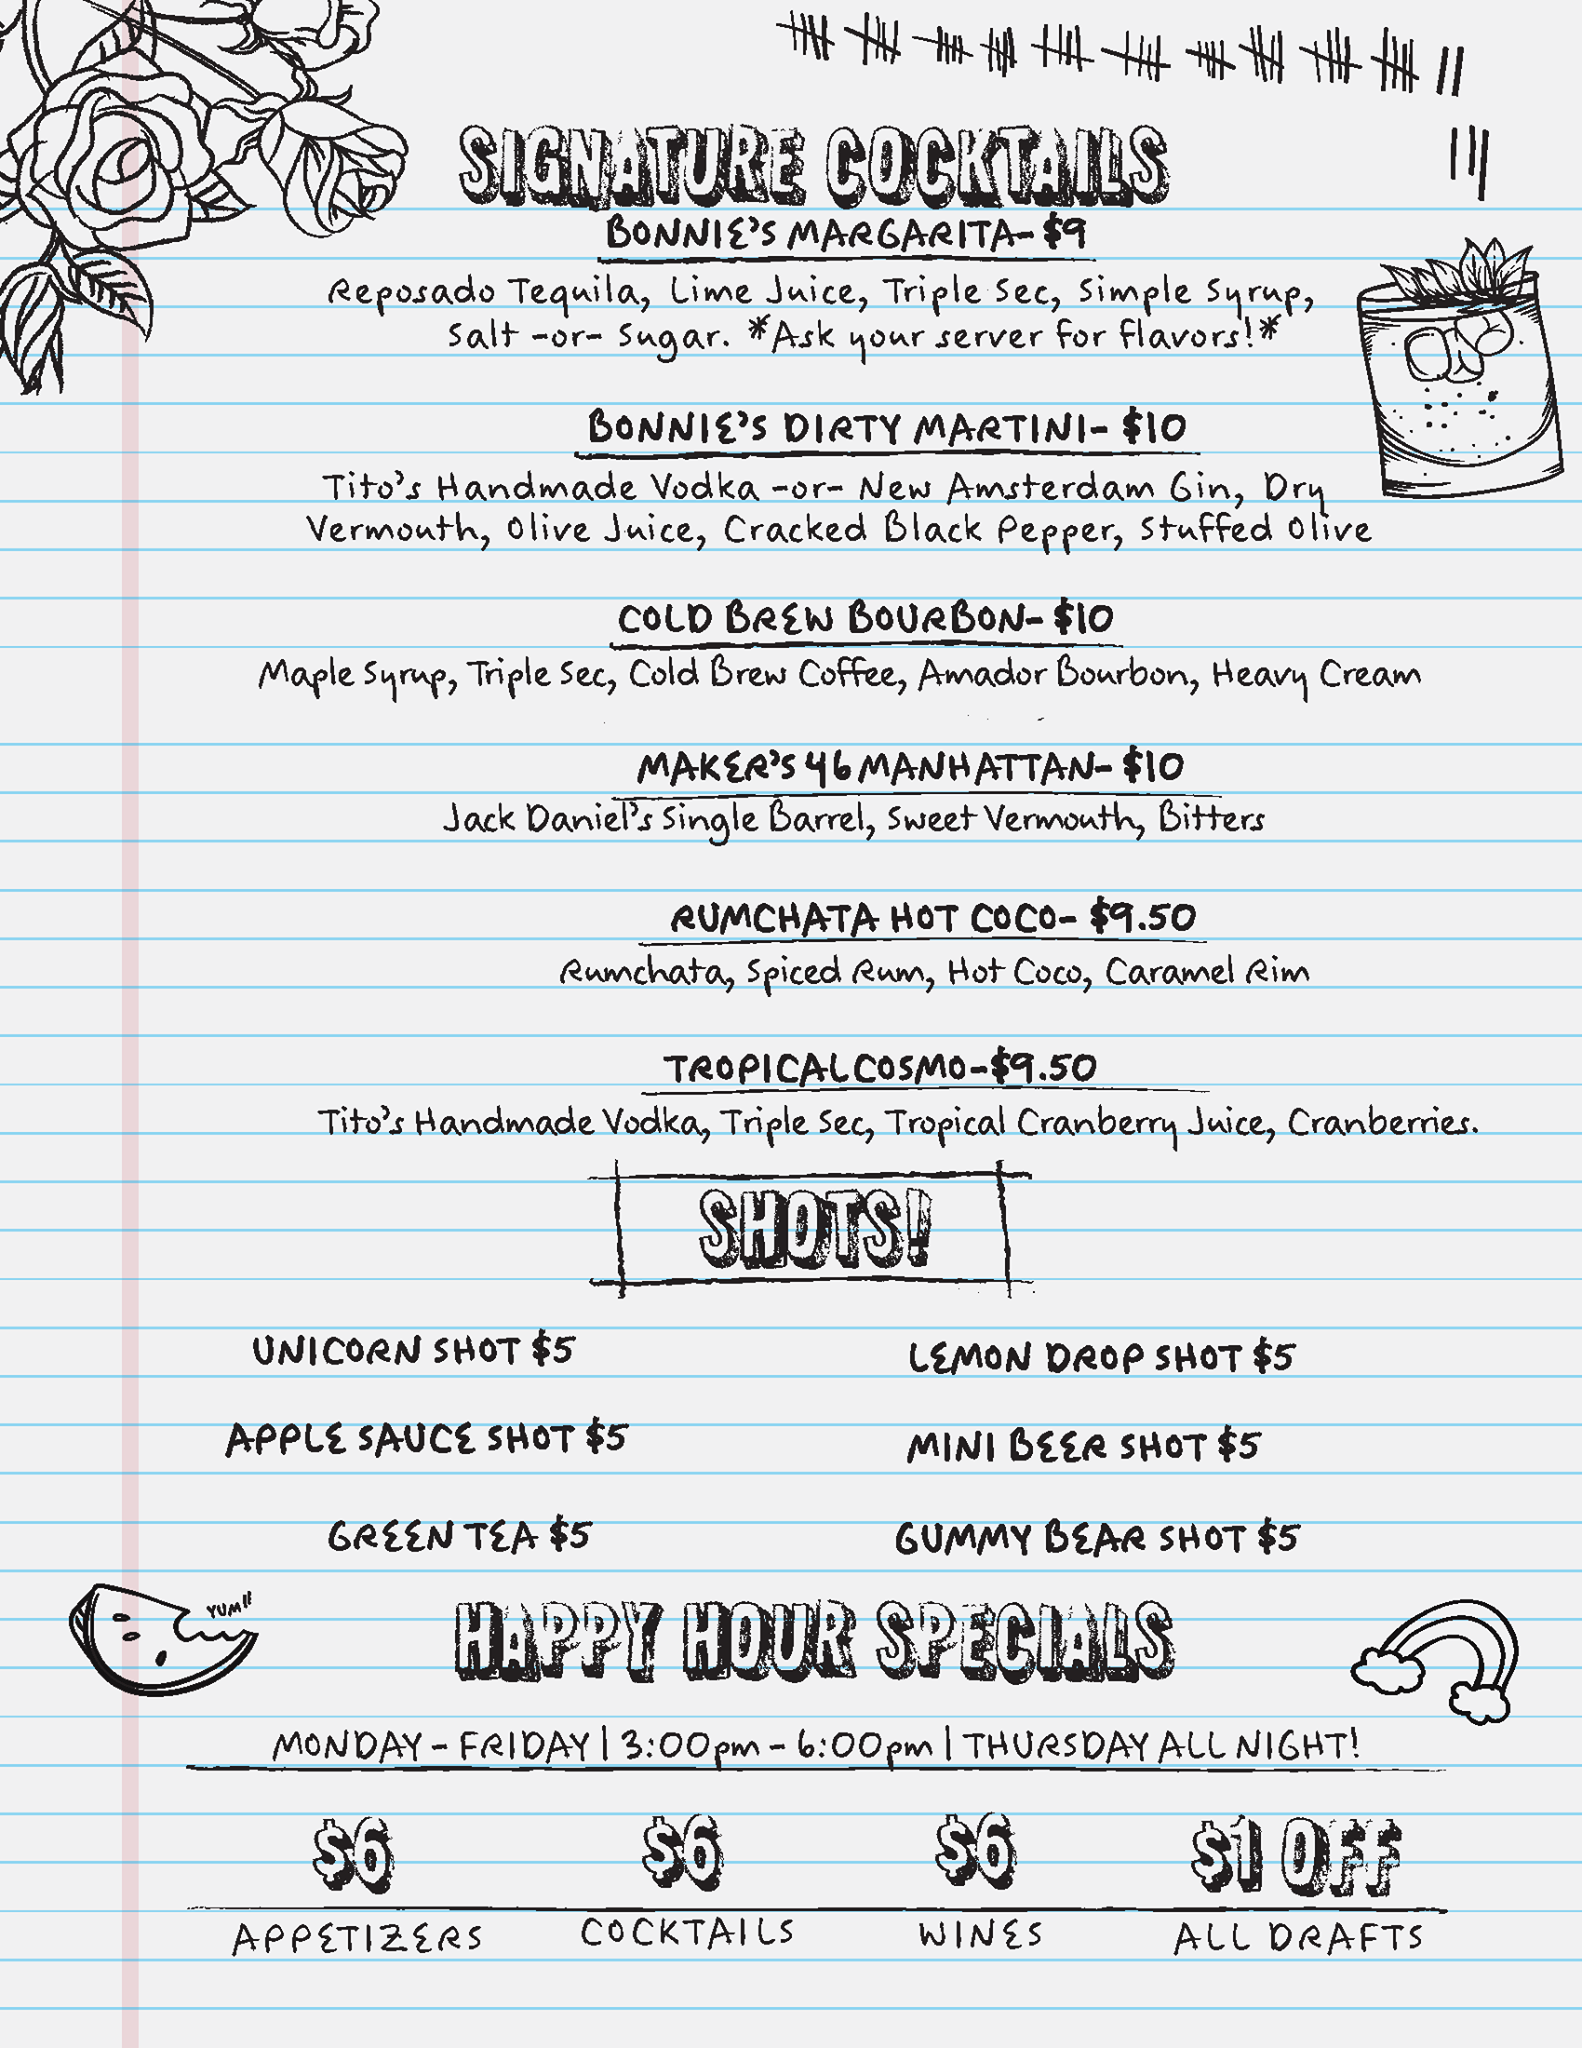 SIGNATURE COCKTAILS
BONNIE'S MARGARITA- $9
Reposado Tequila, Lime Juice, Triple Sec, Simple Syrup,
Salt -or- Sugar. *Ask your server for flavors!*
BONNIE'S DIRTY MARTINI- $10
Tito's Handmade Vodka -or- New Amsterdam Gin, Dry
Vermouth, Olive Juice, Cracked Black Pepper, Stuffed Olive
COLD BREW BOURBON- $10
Maple Syrup, Triple Sec, Cold Brew Coffee, Amador Bourbon, Heavy Cream
MAKER'S 46 MANHATTAN- $10
Jack Daniel's Single Barrel, Sweet Vermouth, Bitters
RUMCHATA HOT COCO- $9.50
Rumchata, Spiced Rum, Hot Coco, Caramel Rim
TROPICAL COSMO-$9.50
Tito's Handmade Vodka, Triple Sec, Tropical Cranberry Juice, Cranberries.
SHOTS!
UNICORN SHOT $5
LEMON DROP SHOT $5
APPLE SAUCE SHOT $5
MINI BEER SHOT $5
GREEN TEA $5
GUMMY BEAR SHOT $5
YUM!!
HAPPY HOUR SPECIALS
MONDAY - FRIDAY | 3:00pm - 6:00pm | THURSDAY ALL NIGHT!
$6 $6 $6 $1 OFF
APPETIZERS COCKTAILS WINES ALL DRAFTS